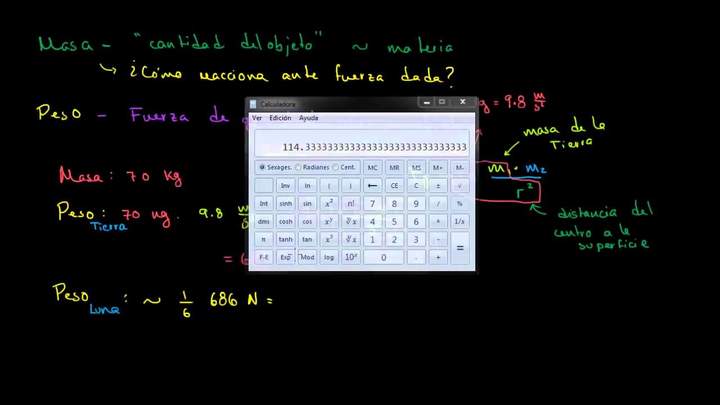 Masa - "cantidad del objeto" ~ materia
↳ ¿Cómo reacciona ante fuerza dada?
Peso - Fuerza de
g = 9.8 m/s²
masa de la
Tierra
m₁ · m₂
r²
distancia del
centro a la
superficie
Masa: 70 kg
Peso Tierra: 70 kg · 9.8 m/s
= 6
Peso Luna: ~ 1/6 686 N =
Calculadora
Ver Edición Ayuda
114.33333333333333333333333333333
Sexages. Radianes Cent. MC MR MS M+ M-
Inv ln ( ) ← CE C ± √
Int sinh sin x² n! 7 8 9 / %
dms cosh cos xʸ ʸ√x 4 5 6 * 1/x
π tanh tan x³ ³√x 1 2 3 - =
F-E Exp Mod log 10ˣ 0 . +